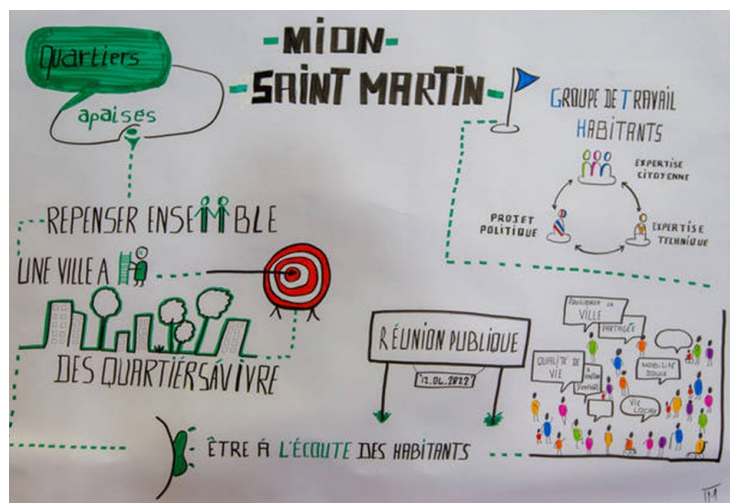 Quartiers
apaisés
-MION-
-SAINT MARTIN-
GROUPE DE TRAVAIL
HABITANTS
EXPERTISE
CITOYENNE
PROJET
POLITIQUE
EXPERTISE
TECHNIQUE
REPENSER ENSEMBLE
UNE VILLE A
DES QUARTIERS À VIVRE
RÉUNION PUBLIQUE
12.04.2022
VILLE
PARTAGÉE
QUALITÉ DE
VIE
MOBILITÉ
DOUCE
VIE
ÊTRE À L'ÉCOUTE DES HABITANTS
TM